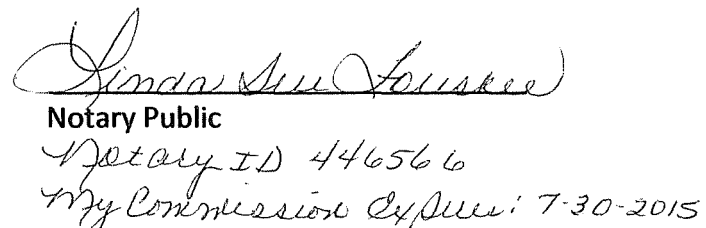 Linda Sue
Notary Public
Notary ID 446566
My Commission Expires: 7-30-2015